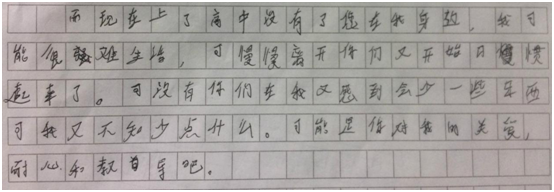 而现在上了高中没有了您在我身边，我可
能很难生活，可慢慢离开你们又开始习惯
起来了。可没有你们在我又感到会少一些东西
可我又不知少点什么。可能是你对我的关爱，
耐心和教导吧。